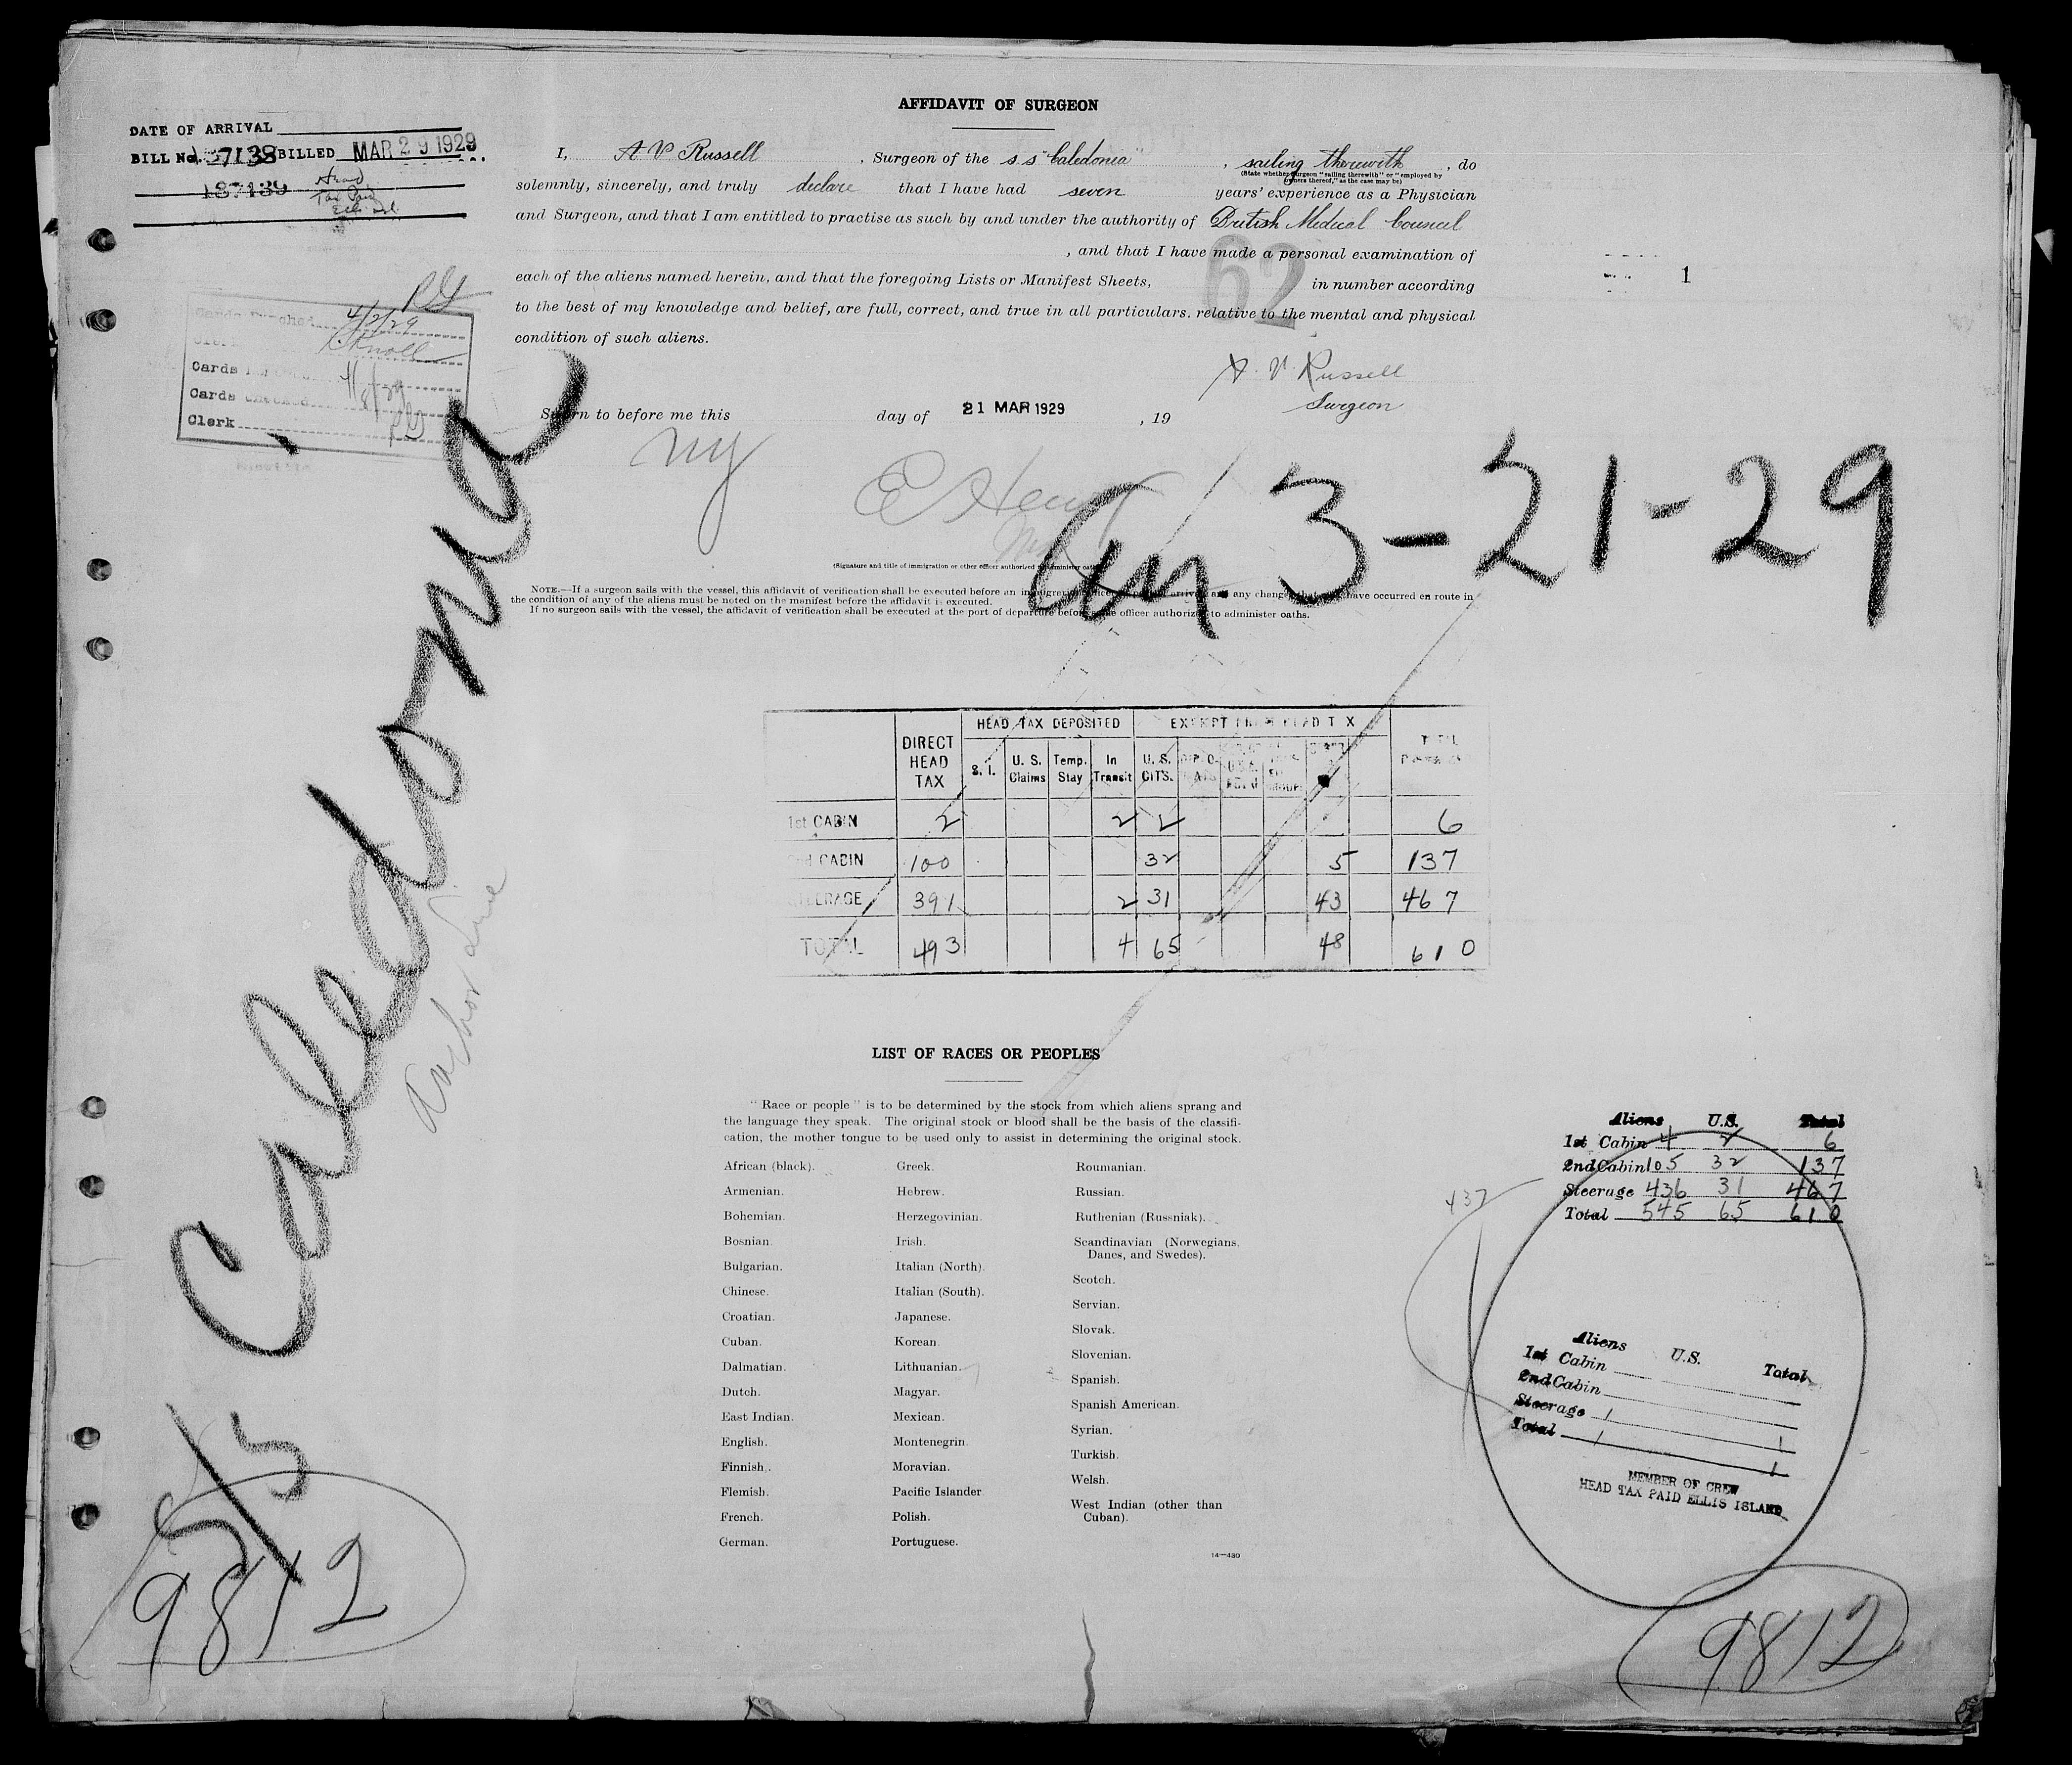 AFFIDAVIT OF SURGEON
DATE OF ARRIVAL
BILL No. 187138 BILLED MAR 29 1929
187139 Head
Tax Paid
Ells Isl.
I, A V Russell, Surgeon of the s.s "Caledonia", sailing therewith, do
(State whether surgeon "sailing therewith" or "employed by
owners thereof," as the case may be)
solemnly, sincerely, and truly declare that I have had seven years' experience as a Physician
and Surgeon, and that I am entitled to practise as such by and under the authority of British Medical Council
, and that I have made a personal examination of
each of the aliens named herein, and that the foregoing Lists or Manifest Sheets, 62 in number according
to the best of my knowledge and belief, are full, correct, and true in all particulars. relative to the mental and physical
condition of such aliens.
1
Cards Punched 4/2/29
Knoll
Cards
Cards Checked
Clerk
A. V. Russell
Surgeon
Sworn to before me this day of 21 MAR 1929, 19
NY
E Henry
(Signature and title of immigration or other officer authorized to administer oaths)
3-21-29
NOTE.—If a surgeon sails with the vessel, this affidavit of verification shall be executed before an immigration officer arrival and any change that have occurred en route in
the condition of any of the aliens must be noted on the manifest before the affidavit is executed.
If no surgeon sails with the vessel, the affidavit of verification shall be executed at the port of departure before officer authorized to administer oaths.
Caledonia
Anchor Line
HEAD TAX DEPOSITED EXEMPT FROM HEAD TAX
DIRECT HEAD TAX S. I. U. S. Claims Temp. Stay In Transit U. S. CITS. TOTAL
1st CABIN 2 2 2 6
2nd CABIN 100 32 5 137
STEERAGE 391 2 31 43 467
TOTAL 493 4 65 48 610
LIST OF RACES OR PEOPLES
"Race or people" is to be determined by the stock from which aliens sprang and
the language they speak. The original stock or blood shall be the basis of the classifi-
cation, the mother tongue to be used only to assist in determining the original stock.
African (black).
Armenian.
Bohemian.
Bosnian.
Bulgarian.
Chinese.
Croatian.
Cuban.
Dalmatian.
Dutch.
East Indian.
English.
Finnish.
Flemish.
French.
German.
Greek.
Hebrew.
Herzegovinian.
Irish.
Italian (North).
Italian (South).
Japanese.
Korean.
Lithuanian.
Magyar.
Mexican.
Montenegrin.
Moravian.
Pacific Islander
Polish.
Portuguese.
Roumanian.
Russian.
Ruthenian (Russniak).
Scandinavian (Norwegians,
Danes, and Swedes).
Scotch.
Servian.
Slovak.
Slovenian.
Spanish.
Spanish American.
Syrian.
Turkish.
Welsh.
West Indian (other than
Cuban).
14—430
Aliens U.S. Total
1st Cabin 4 2 6
2nd Cabin 105 32 137
Steerage 436 31 467
Total 545 65 610
437
Aliens U.S. Total
1st Cabin
2nd Cabin
Steerage 1 1
Total 1 1
MEMBER OF CREW
HEAD TAX PAID ELLIS ISLAND
5/5
9812
9812